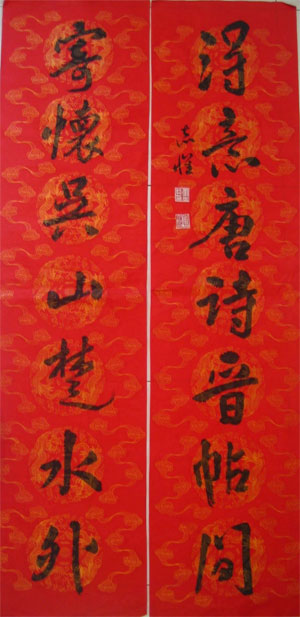 得意唐诗晋帖间
寄懷吳山楚水外